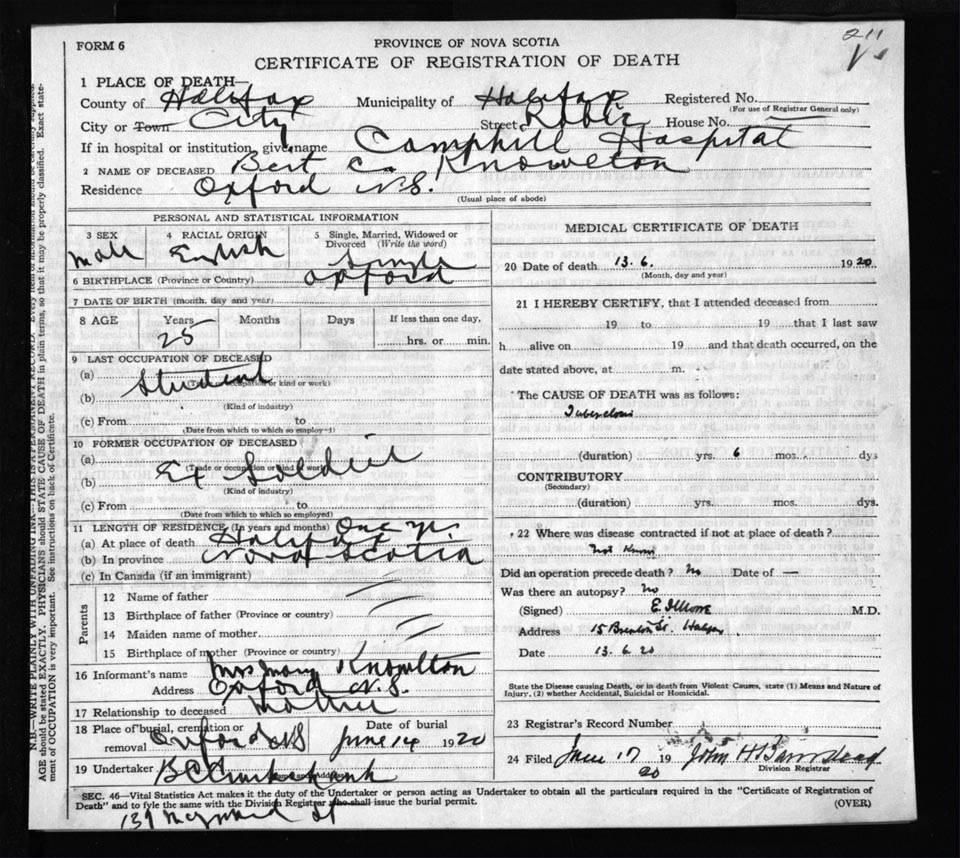 211
FORM 6
PROVINCE OF NOVA SCOTIA
CERTIFICATE OF REGISTRATION OF DEATH
1 PLACE OF DEATH—
County of Halifax Municipality of Halifax Registered No.
(For use of Registrar General only)
City or Town City Street Robie House No.
If in hospital or institution, give name Camphill Hospital
2 NAME OF DECEASED Bert C. Knowlton
Residence Oxford N.S.
(Usual place of abode)
PERSONAL AND STATISTICAL INFORMATION
3 SEX Male
4 RACIAL ORIGIN English
5 Single, Married, Widowed or Divorced (Write the word) Single
6 BIRTHPLACE (Province or Country) Oxford
7 DATE OF BIRTH (month, day and year)
8 AGE Years 25 Months Days If less than one day, hrs. or min.
9 LAST OCCUPATION OF DECEASED
(a) Student
(Trade or occupation or kind or work)
(b)
(Kind of industry)
(c) From to
(Date from which to which so employed)
10 FORMER OCCUPATION OF DECEASED
(a) Ex Soldier
(Trade or occupation or kind of work)
(b)
(Kind of industry)
(c) From to
(Date from which to which so employed)
11 LENGTH OF RESIDENCE (In years and months) One yr.
(a) At place of death Halifax
(b) In province Nova Scotia
(c) In Canada (if an immigrant)
Parents
12 Name of father
13 Birthplace of father (Province or country)
14 Maiden name of mother
15 Birthplace of mother (Province or country)
16 Informant's name Mrs Mary Knowlton
Address Oxford N.S.
17 Relationship to deceased Mother
18 Place of burial, cremation or removal Oxford NS Date of burial June 14 1920
19 Undertaker
Name and Address
MEDICAL CERTIFICATE OF DEATH
20 Date of death 13.6. 1920.
(Month, day and year)
21 I HEREBY CERTIFY, that I attended deceased from
19 to 19 that I last saw
h alive on 19 and that death occurred, on the
date stated above, at m.
The CAUSE OF DEATH was as follows:
Tuberclosis
(duration) yrs. 6 mos. dys
CONTRIBUTORY
(Secondary)
(duration) yrs. mos. dys.
22 Where was disease contracted if not at place of death?
not known
Did an operation precede death? No Date of —
Was there an autopsy? No
(Signed) M.D.
Address 15 St. Halifax
Date 13.6 20
State the Disease causing Death, or in death from Violent Causes, state (1) Means and Nature of
Injury, (2) whether Accidental, Suicidal or Homicidal.
23 Registrar's Record Number
24 Filed June 17 1920 John H
Division Registrar
SEC. 46—Vital Statistics Act makes it the duty of the Undertaker or person acting as Undertaker to obtain all the particulars required in the "Certificate of Registration of
Death" and to fyle the same with the Division Registrar who shall issue the burial permit.
(OVER)
St
N.B.—WRITE PLAINLY WITH UNFADING INK—THIS IS A PERMANENT RECORD.
AGE should be stated EXACTLY. PHYSICIANS should STATE CAUSE OF DEATH in plain terms, so that it may be properly classified. Exact state-
ment of OCCUPATION is very important. See instructions on back of Certificate.